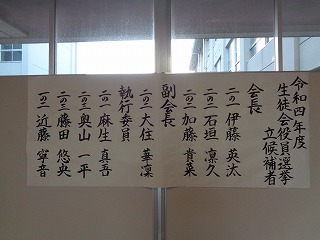 令和四年度
生徒会役員選挙
立候補者
会長
二の一 伊藤 英汰
二の一 石垣 凛久
二の二 加藤 貴菜
副会長
二の二 大住 華凛
執行委員
二の一 麻生 真吾
二の三 奥山 一平
二の三 藤田 悠央
一の一 近藤 寧音